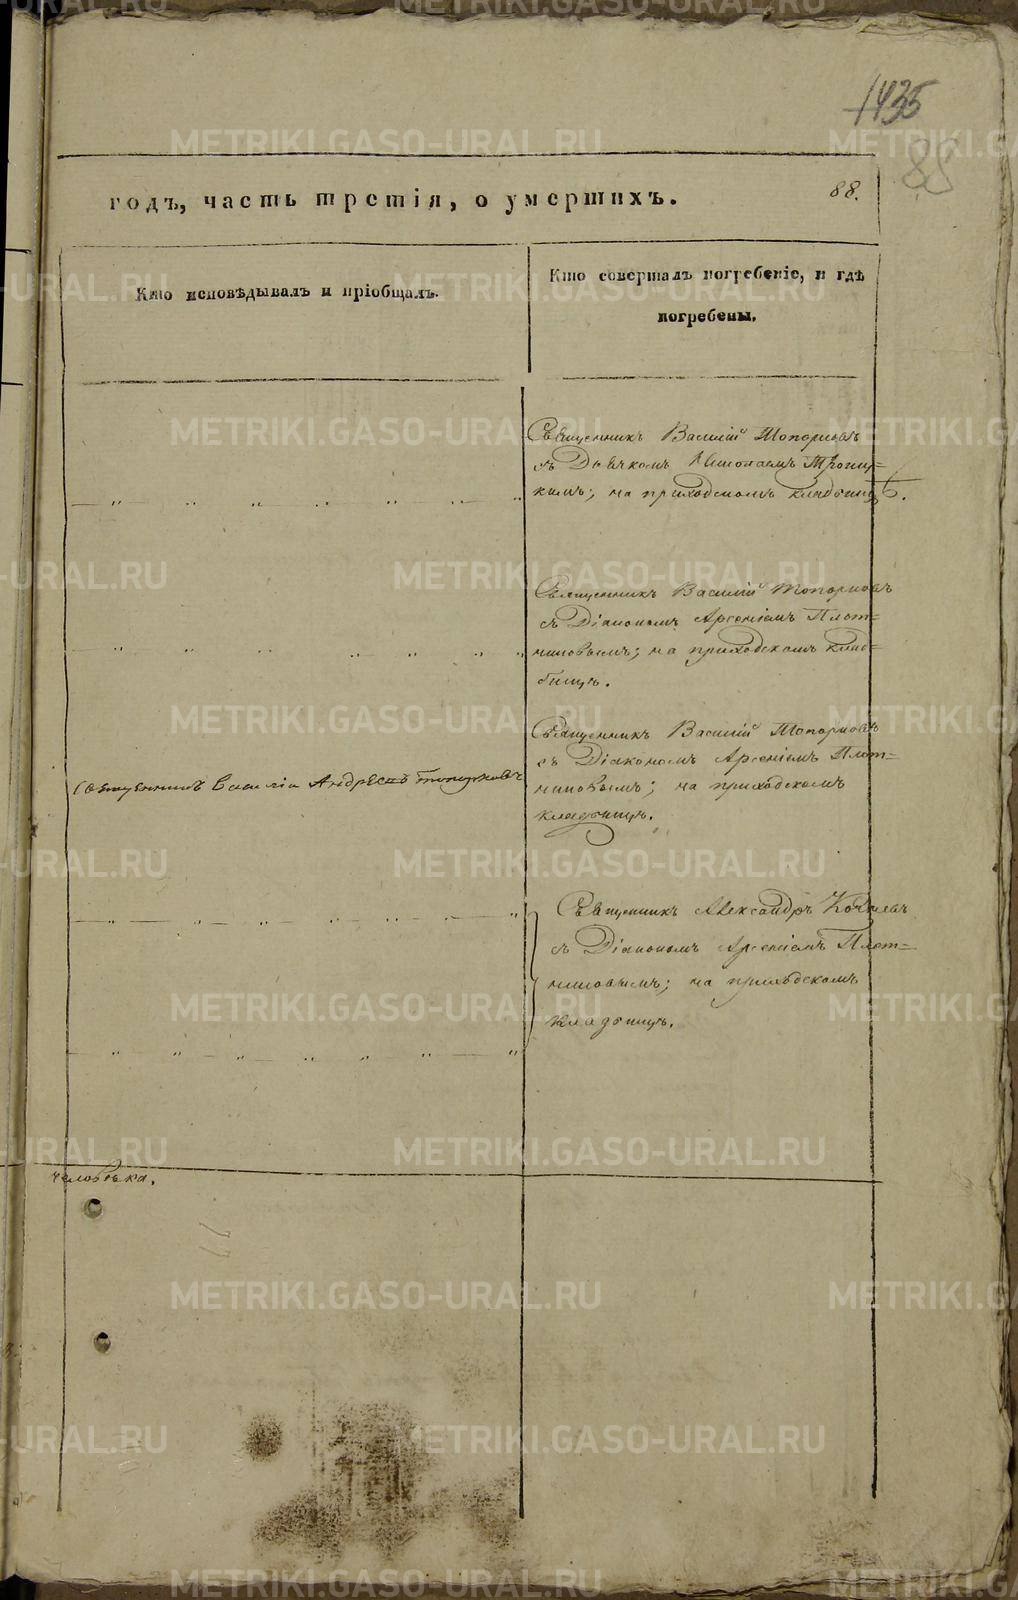 1435
88
годъ, часть третія, о умершихъ.
88.
Кто исповѣдывалъ и пріобщалъ.
Кто совершалъ погребеніе, и гдѣ
погребены.
Священникъ Василій Топорковъ
съ Дьячкомъ Николаемъ Троиц-
кимъ; на приходскомъ кладбищѣ.
Священникъ Василій Топорковъ
съ Діакономъ Арсеніемъ Плот-
никовымъ; на приходскомъ клад-
бищѣ.
Священникъ Василій Топорковъ
съ Діакономъ Арсеніемъ Плот-
никовымъ; на приходскомъ
кладбищѣ.
Священникъ Василій Андреевъ Топорковъ
Священникъ Александръ
съ Діакономъ Арсеніемъ Плот-
никовымъ; на приходскомъ
кладбищѣ.
человѣка.
METRIKI.GASO-URAL.RU